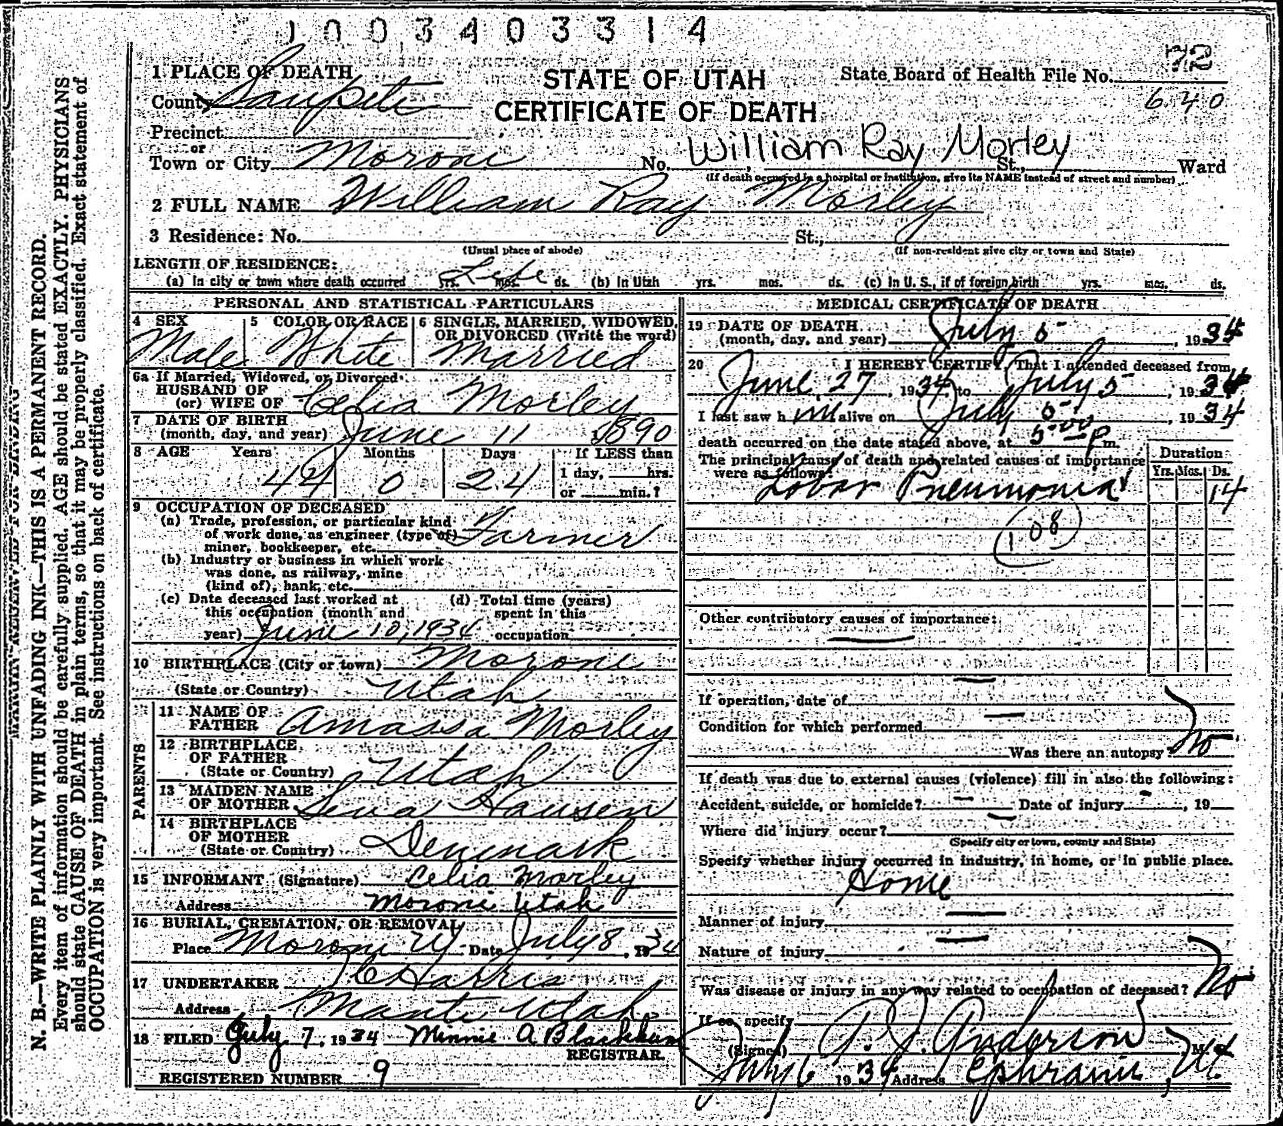 1003403314
STATE OF UTAH
CERTIFICATE OF DEATH
State Board of Health File No. 72
640
1 PLACE OF DEATH
County Sanpete
Precinct
or
Town or City Moroni No. William Ray Morley St., Ward
(If death occurred in a hospital or institution, give its NAME instead of street and number)
2 FULL NAME William Ray Morley
3 Residence: No. St.,
(Usual place of abode) (If non-resident give city or town and State)
LENGTH OF RESIDENCE:
(a) In city or town where death occurred Life yrs. mos. ds. (b) In Utah yrs. mos. ds. (c) In U. S., if of foreign birth yrs. mos. ds.
PERSONAL AND STATISTICAL PARTICULARS
4 SEX 5 COLOR OR RACE 6 SINGLE, MARRIED, WIDOWED,
OR DIVORCED (Write the word)
Male White Married
6a If Married, Widowed, or Divorced
HUSBAND OF
(or) WIFE OF Celia Morley
7 DATE OF BIRTH
(month, day, and year) June 11 1890
8 AGE Years Months Days If LESS than
1 day, hrs.
or min.?
44 0 24
9 OCCUPATION OF DECEASED
(a) Trade, profession, or particular kind
of work done, as engineer (type of)
miner, bookkeeper, etc. Farmer
(b) Industry or business in which work
was done, as railway, mine
(kind of), bank, etc.
(c) Date deceased last worked at
this occupation (month and
year) June 10, 1934
(d) Total time (years)
spent in this
occupation
10 BIRTHPLACE (City or town) Moroni
(State or Country) Utah
PARENTS
11 NAME OF
FATHER Amassa Morley
12 BIRTHPLACE
OF FATHER
(State or Country) Utah
13 MAIDEN NAME
OF MOTHER Sena Hansen
14 BIRTHPLACE
OF MOTHER
(State or Country) Denmark
15 INFORMANT (Signature) Celia Morley
Address Moroni Utah
16 BURIAL, CREMATION, OR REMOVAL
Place Moroni Ut Date July 8, 1934
17 UNDERTAKER Harris
Address Manti Utah
18 FILED July 7, 1934 Minnie A Blackham
REGISTRAR.
REGISTERED NUMBER 9
MEDICAL CERTIFICATE OF DEATH
19 DATE OF DEATH
(month, day, and year) July 5, 1934
20 I HEREBY CERTIFY That I attended deceased from
June 27, 1934 to July 5, 1934
I last saw h im alive on July 5, 1934
death occurred on the date stated above, at 5:00 P m.
The principal cause of death and related causes of importance
were as follows:
Duration
Yrs. Mos. Ds.
Lobar Pneumonia 14
108
Other contributory causes of importance:
If operation, date of
Condition for which performed
Was there an autopsy? No
If death was due to external causes (violence) fill in also the following:
Accident, suicide, or homicide? Date of injury , 19
Where did injury occur?
(Specify city or town, county and State)
Specify whether injury occurred in industry, in home, or in public place.
Home
Manner of injury
Nature of injury
Was disease or injury in any way related to occupation of deceased? No
If so, specify
(Signed) P. J. Anderson, M. D.
July 6 1934 Address Ephraim, Ut
N. B.—WRITE PLAINLY WITH UNFADING INK—THIS IS A PERMANENT RECORD.
Every item of information should be carefully supplied. AGE should be stated EXACTLY. PHYSICIANS
should state CAUSE OF DEATH in plain terms, so that it may be properly classified. Exact statement of
OCCUPATION is very important. See instructions on back of certificate.